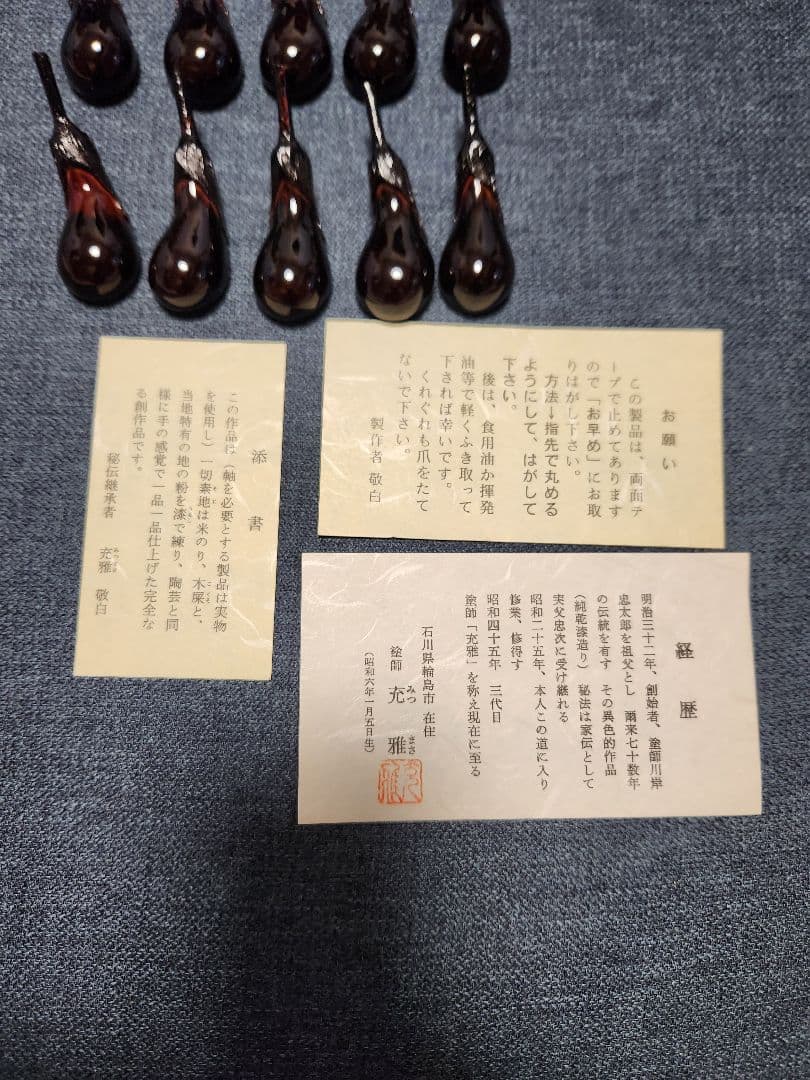 お願い
この製品は、両面テ
ープで止めてあります
ので「お早め」にお取
りはがし下さい。
方法→指先で丸める
ようにして、はがして
下さい。
後は、食用油か揮発
油等で軽くふき取って
下されば幸いです。
くれぐれも爪をたて
ないで下さい。
製作者 敬白
添書
この作品は(軸を必要とする製品は実物
を使用し)一切素地は米のり、木屎と、
当地特有の地の粉を漆で練り、陶芸と同
様に手の感覚で一品一品仕上げた完全な
る創作品です。
秘伝継承者 充雅 敬白
みつまさ
経歴
明治三十二年、創始者、塗師川岸
忠太郎を祖父とし 爾来七十数年
の伝統を有す その異色的作品
(純乾漆造り) 秘法は家伝として
実父忠次に受け継れる
昭和二十五年、本人この道に入り
修業、修得す
昭和四十五年 三代目
塗師「充雅」を称え現在に至る
石川県輪島市 在住
塗師 充雅
みつ まさ
(昭和六年一月五日生)